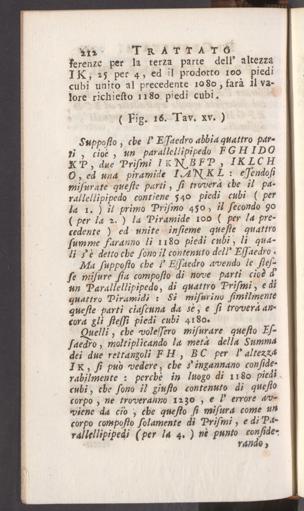 212 TRATTATO
ferenze per la terza parte dell' altezza
IK, 25 per 4, ed il prodotto 100 piedi
cubi unito al precedente 1080, farà il va-
lore richiesto 1180 piedi cubi.
( Fig. 16. Tav. xv. )
Supposto, che l' Essaedro abbia quattro par-
ti, cioè, un parallellipipedo FGHIDO
KP, due Prismi IKNBFP, IKLCH
O, ed una piramide IANKL: essendosi
misurate queste parti, si troverà che il pa-
rallellipipedo contiene 540 piedi cubi ( per
la 1. ) il primo Prisma 450, il secondo 90
( per la 2. ) la Piramide 100 ( per la pre-
cedente ) ed unite insieme queste quattro
summe faranno li 1180 piedi cubi, li qua-
li s'è detto che sono il contenuto dell' Essaedro.
Ma supposto che l' Essaedro avendo le stes-
se misure sia composto di nove parti cioè d'
un Parallellipipedo, di quattro Prismi, e di
quattro Piramidi: Si misurino similmente
queste parti ciascuna da sè, e si troverà an-
cora gli stessi piedi cubi 4180.
Quelli, che volessero misurare questo Es-
saedro, moltiplicando la metà della Summa
dei due rettangoli FH, BC per l' altezza
IK, si può vedere, che s'ingannano conside-
rabilmente: perchè in luogo di 1180 piedi
cubi, che sono il giusto contenuto di questo
corpo, ne troveranno 1230, e l' errore av-
viene da ciò, che questo si misura come un
corpo composto solamente di Prismi, e di Pa-
rallellipipedi (per la 4. ) nè punto conside-
rando,